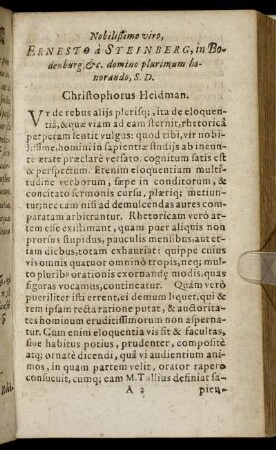 Nobilissimo viro,
ERNESTO à STEINBERG, in Bo-
denburg, &c. domino plurimum ho-
norando, S. D.
Christophorus Heidman.
VT de rebus alijs plerisq;, ita de eloquen-
tiâ, & quæ viam ad eam sternit, rhetoricâ
perperam sentit vulgus: quod tibi, vir nobi-
lissime, homini in sapientiæ studijs ab ineun-
te ætate præclarè versato, cognitum satis est
& perspectum. Etenim eloquentiam multi-
tudine verborum, sæpe in conditorum, &
concitato sermonis cursu, plæriq; metiun-
tur; nec eam nisi ad demulcendas aures com-
paratam arbitrantur. Rhetoricam verò ar-
tem esse existimant, quam puer aliquis non
prorsus stupidus, pauculis mensibus, aut eti-
am diebus, totam exhauriat: quippe cuius
vis omnis quatuor omninò tropis, neq; mul-
to pluribꝰ orationis exornandę modis, quas
figuras vocamus, contineatur. Quàm verò
pueriliter isti errent, ei demum liquet, qui ar-
tem ipsam recta ratione putat, & auctorita-
tes hominum eruditissimorum non asperna-
tur. Cum enim eloquentia vis sit & facultas,
siue habitus potius, prudenter, compositè
atq; ornatè dicendi, quâ vi audientium ani-
mos, in quam partem velit, orator rapere
consueuit, cumq; eam M. Tullius definiat sa-
A 2 pien-